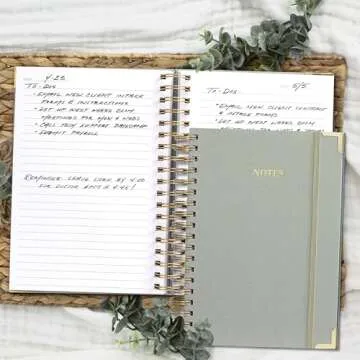 4/25
TO-DOS:
• EMAIL NEW CLIENT INTAKE
FORMS & INSTRUCTIONS
• SET UP NEXT WEEKS ZOOM
MEETINGS FOR MON & WEDS
• CALL TECH SUPPORT
• SUBMIT PAYROLL
REMINDER: LEAVE WORK BY 4:00
FOR DOCTOR APPT @ 4:45!
5/5
TO-DOS:
• EMAIL NEW CLIENT CONTRACT
& INTAKE FORMS
• SET UP NEXT WEEKS ZOOM
NOTES